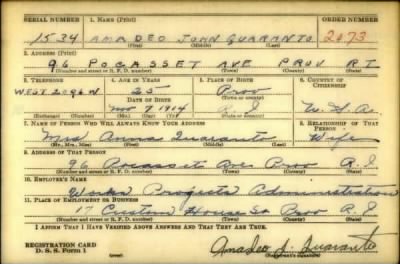 SERIAL NUMBER 1. NAME (Print) ORDER NUMBER
1534 AMADEO JOHN QUARANTO 2073
(First) (Middle) (Last)
2. ADDRESS (Print)
96 POCASSET AVE PROV RI
(Number and street or R. F. D. number) (Town) (County) (State)
3. TELEPHONE 4. AGE IN YEARS 5. PLACE OF BIRTH 6. COUNTRY OF CITIZENSHIP
WEST 2096W 25 Prov
DATE OF BIRTH (Town or county)
Nov 7 1914 R I U.S.A.
(Exchange) (Number) (Mo.) (Day) (Yr.) (State or country)
7. NAME OF PERSON WHO WILL ALWAYS KNOW YOUR ADDRESS 8. RELATIONSHIP OF THAT PERSON
Mrs Anna Quaranto Wife
(Mr., Mrs., Miss) (First) (Middle) (Last)
9. ADDRESS OF THAT PERSON
96 Pocasset Ave Prov R.I
(Number and street or R. F. D. number) (Town) (County) (State)
10. EMPLOYER'S NAME
Works Projects Administration
11. PLACE OF EMPLOYMENT OR BUSINESS
17 Custom House St Prov R I
(Number and street or R. F. D. number) (Town) (County) (State)
I AFFIRM THAT I HAVE VERIFIED ABOVE ANSWERS AND THAT THEY ARE TRUE.
REGISTRATION CARD
D. S. S. Form 1 Amadeo J. Quaranto
(Registrant's signature)